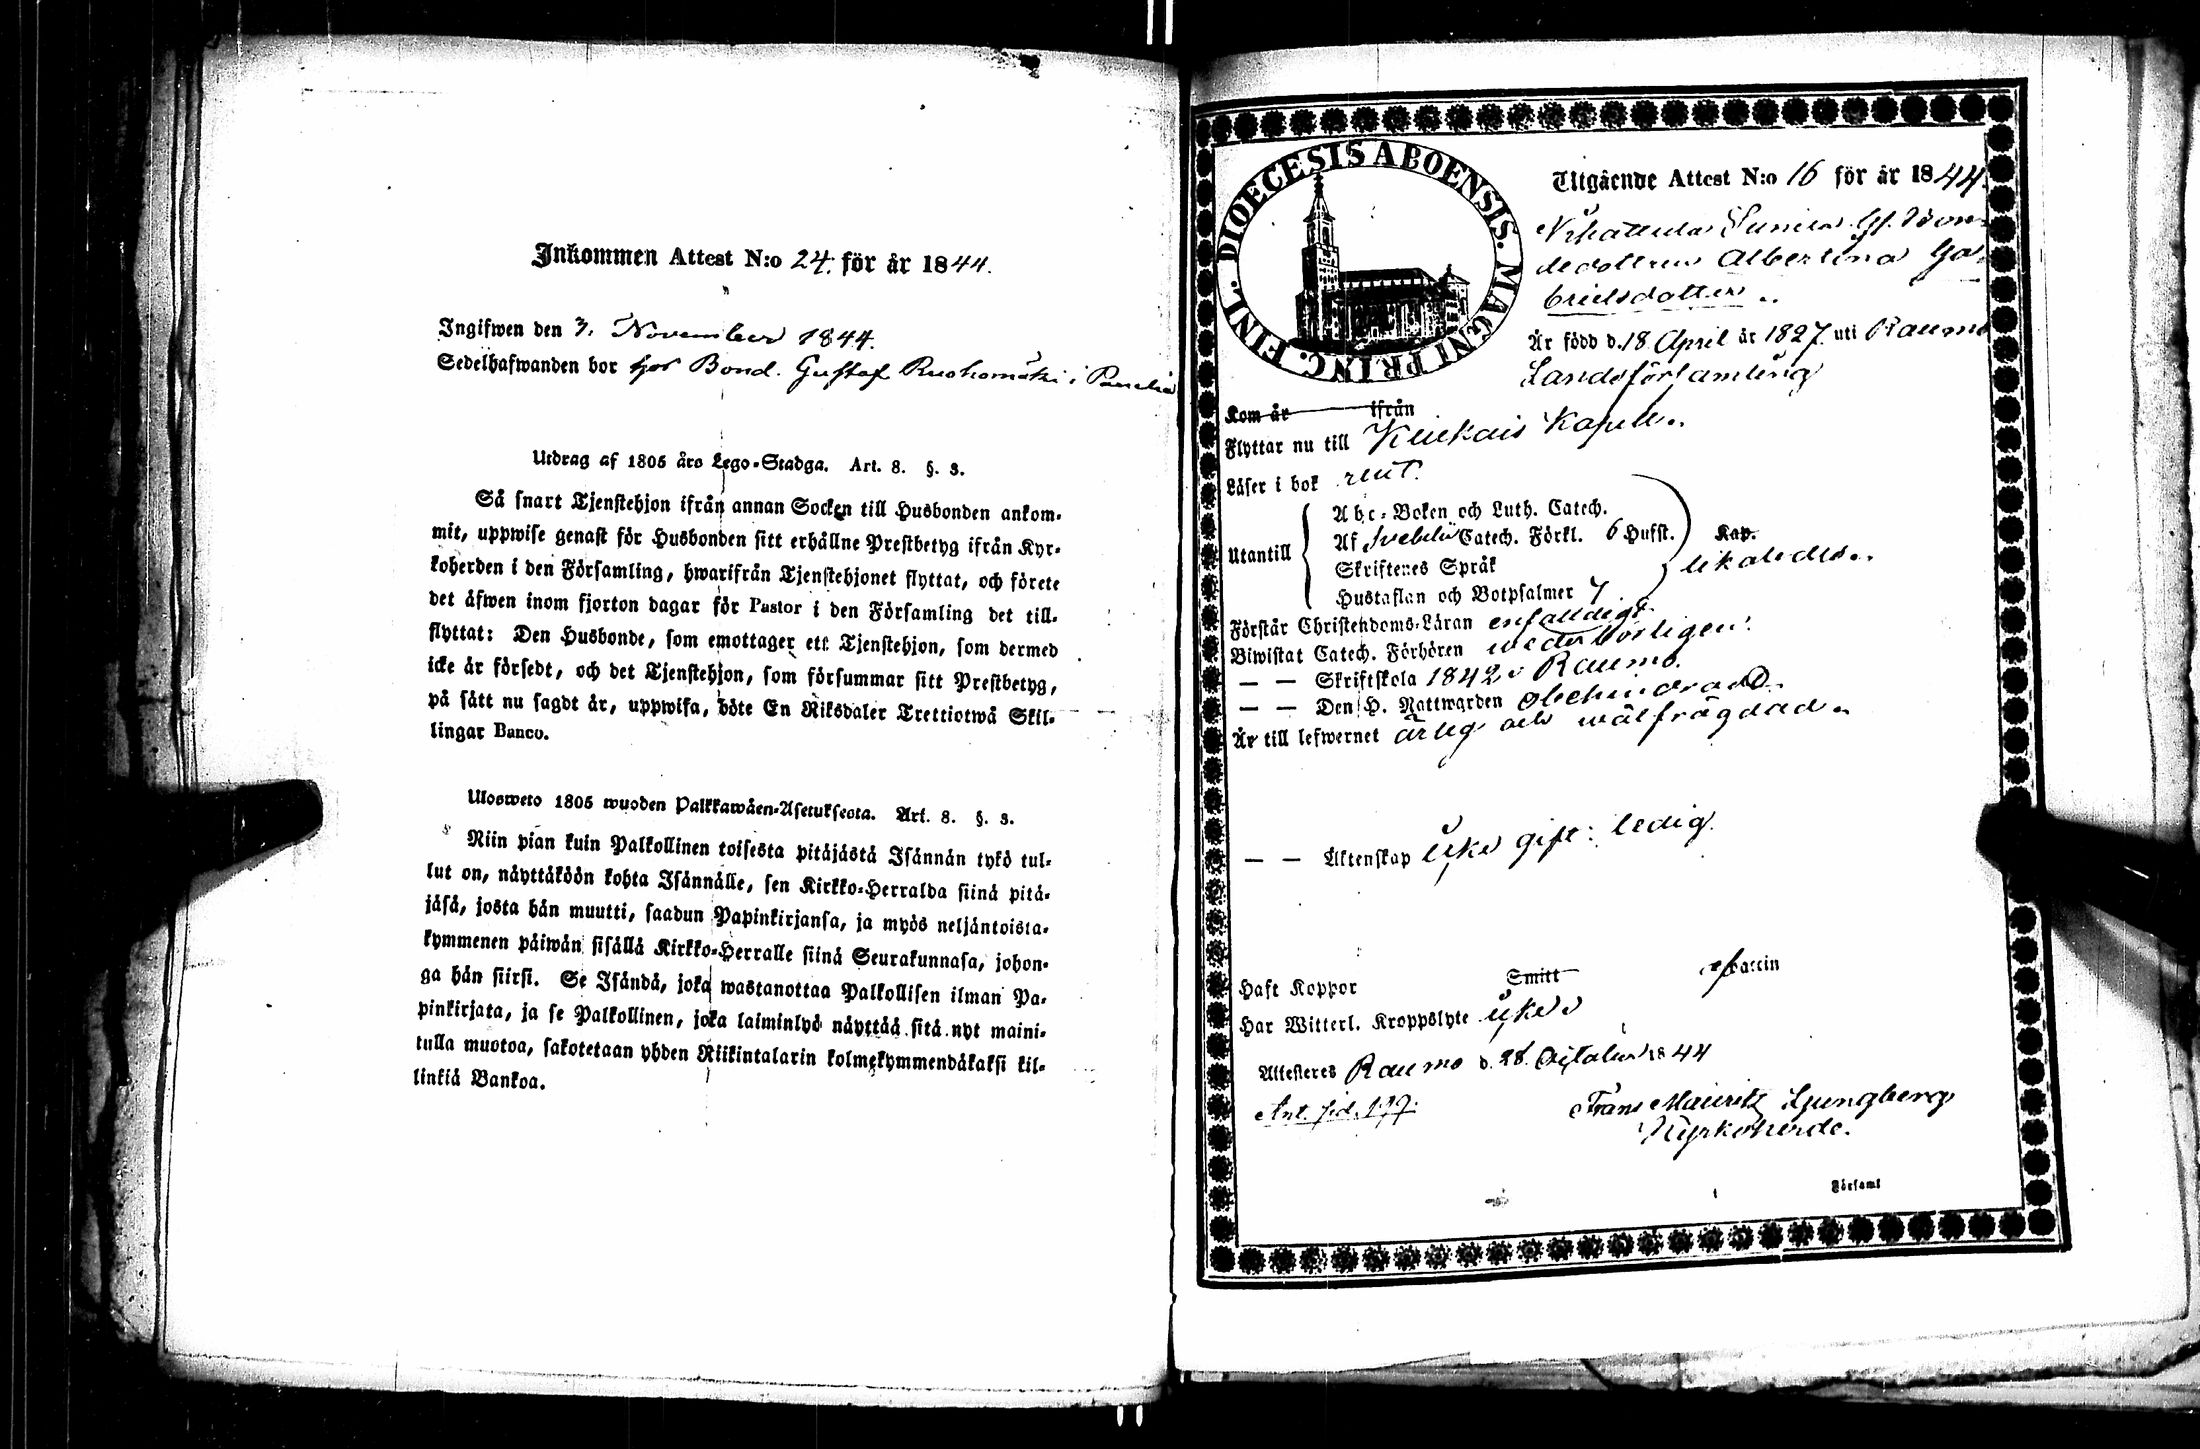 Inkommen Attest N:o 24. för år 1844.
Ingifwen den 3. November 1844.
Sedelhafwanden bor hos Bond. Gustaf Ruohomäki i Panelia
Utdrag af 1805 års Lego-Stadga. Art. 8. §. 3.
Så snart Tjenstehjon ifrån annan Socken till Husbonden ankom-
mit, uppwise genast för Husbonden sitt erhållne Prestbetyg ifrån Kyr-
koherden i den Församling, hwarifrån Tjenstehjonet flyttat, och förete
det äfwen inom fjorton dagar för Pastor i den Församling det till-
flyttat: Den Husbonde, som emottager ett Tjenstehjon, som dermed
icke är försedt, och det Tjenstehjon, som försummar sitt Prestbetyg,
på sätt nu sagdt är, uppwisa, böte En Riksdaler Trettiotwå Skil-
lingar Banco.
Ulosweto 1805 wuoden Palkkawäen-Asetuksesta. Art. 8. §. 3.
Niin pian kuin Palkollinen toisesta pitäjästä Isännän tykö tul-
lut on, näyttäköön kohta Isännälle, sen Kirkko-Herralda siinä pitä-
jäsä, josta hän muutti, saadun Papinkirjansa, ja myös neljäntoista-
kymmenen päiwän sisällä Kirkko-Herralle siinä Seurakunnasa, johon-
ga hän siirsi. Se Isändä, joka wastanottaa Palkollisen ilman Pa-
pinkirjata, ja se Palkollinen, joka laiminlyö näyttää sitä nyt maini-
tulla muotoa, sakotetaan yhden Riikintalarin kolmekymmendäkaksi kil-
linkiä Bankoa.
DIOECESIS ABOENSIS. MAGNI PRINC. FINL.
Utgående Attest N:o 16 för år 1844.
Bon-
dedottren Albertina Ga-
brielsdotter.
Är född d. 18 April år 1827. uti Raumo
Landsförsamling
Kom år ifrån
Flyttar nu till Kiukais Kapell.
Läser i bok rent.
Utantill
Abc-Boken och Luth. Catech.
Af Svebelii Catech. Förkl. 6 Hufst. Kap.
Skriftenes Språk
likaledes.
Hustaflan och Botpsalmer 7
Förstår Christendoms-Läran enfalldigt.
Biwistat Catech. Förhören wederbörligen.
— — Skriftskola 1842 i Raumo.
— — Den H. Nattwarden obehindrad.
Är till lefwernet ärlig och wälfrägdad.
— — Äktenskap icke gift: ledig.
Haft Koppor Smitt Vaccin
Har Witterl. Kroppslyte icke
Attesteres Raumo d. 28. October 1844
Ant. sid. 197.
Frans Mauritz Ljungberg
Kyrkoherde.
Församl